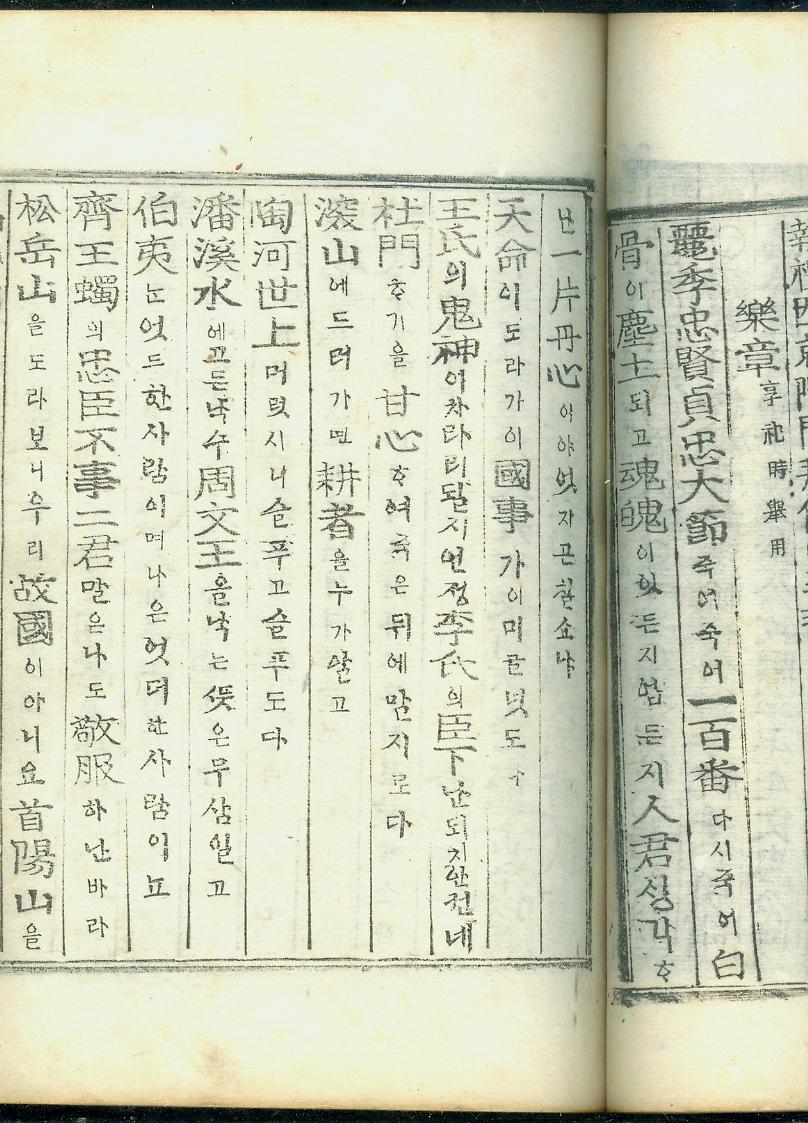 樂章 享祀時舉用
麗季忠賢貞忠大節죽어죽어一百番다시죽어白
骨이塵土되고魂魄이잇든지업든지人君싱각ᄒᆞ
난一片丹心이야엇자곤칠소냐
天命이도라가이國事가이미글넛도
王氏의鬼神이차라리될지언정李氏의臣下난되지안젼네
杜門ᄒᆞ기을甘心ᄒᆞ여죽은뒤에말지로다
深山에드러가면耕者을누가알고
陶河世上머럿시니슬푸고슬푸도다
潘溪水에고든낙수周文王을낙는뜻은무삼일고
伯夷는엇드한사람이며나은엇더한사람이뇨
齊王蠋의忠臣不事二君말은나도敬服하난바라
松岳山을도라보니우리故國이아니요首陽山을